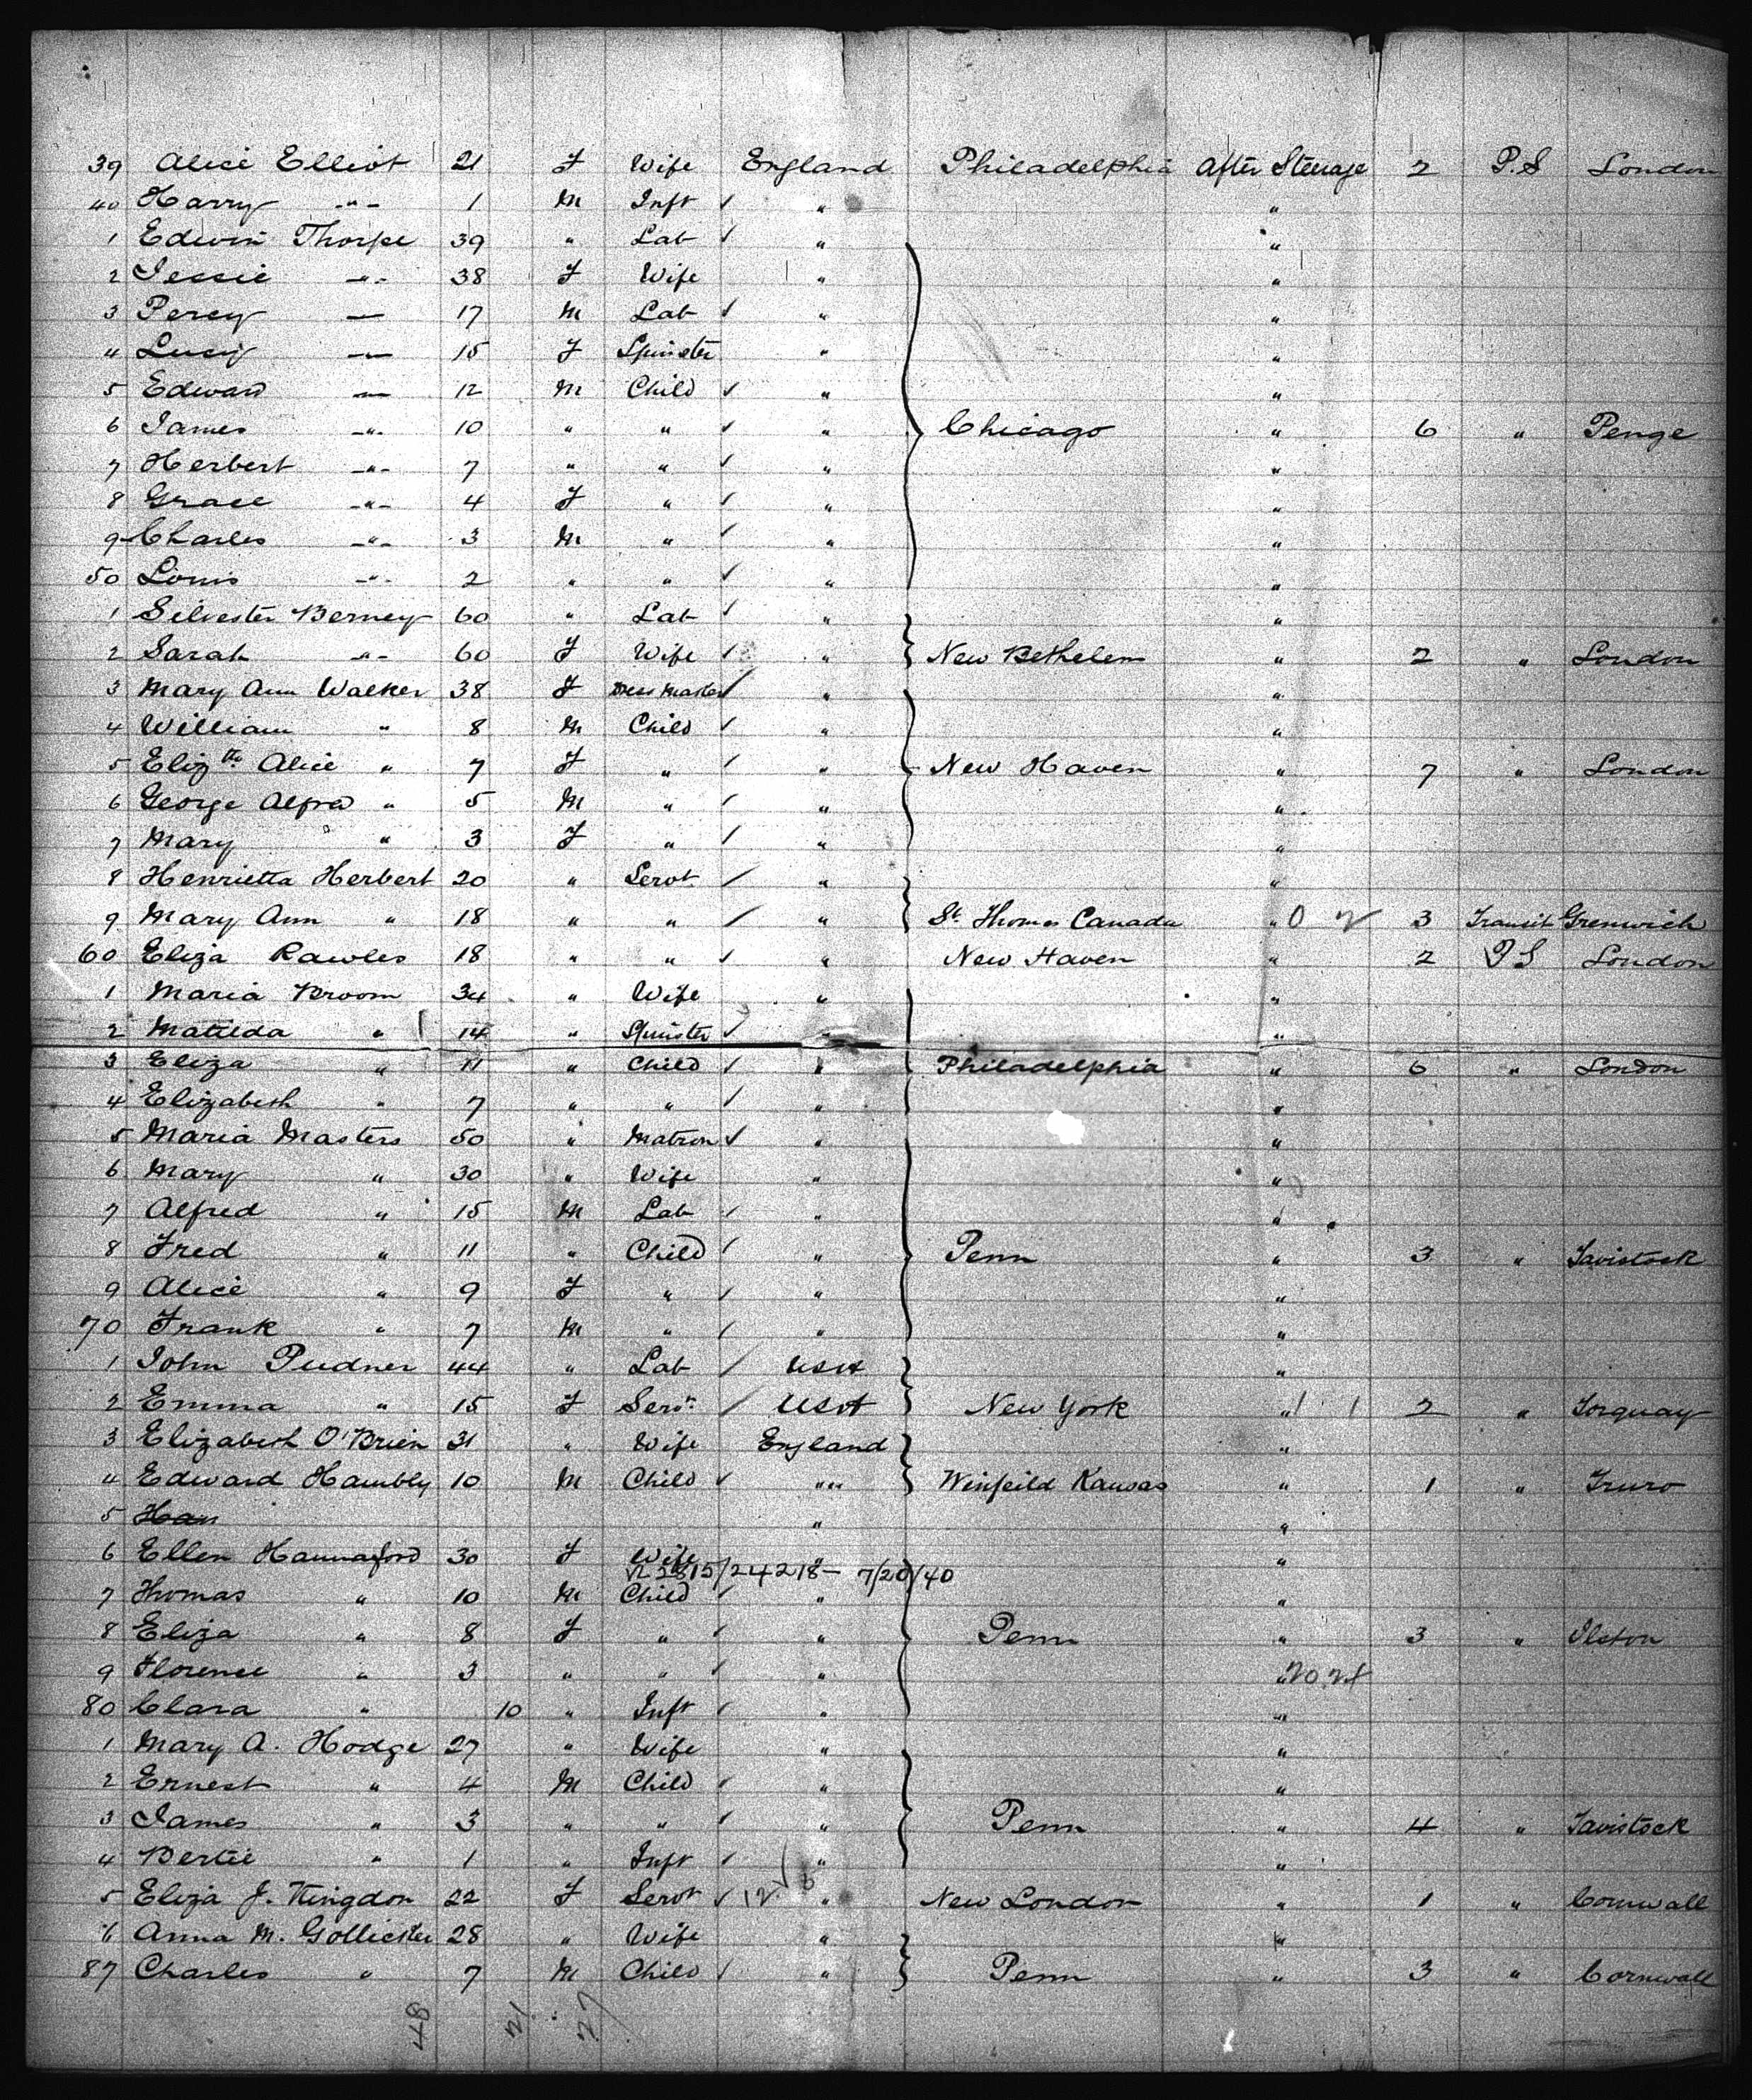 39 Alice Elliot 21 F Wife England Philadelphia After Steerage 2 P.S London
40 Harry -"- 1 M Inft ✓ " "
1 Edwin Thorpe 39 " Lab ✓ " "
2 Jessie -"- 38 F Wife " "
3 Percy -"- 17 M Lab ✓ " "
4 Lucy -"- 15 F Spinster " "
5 Edward -"- 12 M Child ✓ " "
6 James -"- 10 " " ✓ " Chicago " 6 " Penge
7 Herbert -"- 7 " " ✓ " "
8 Grace -"- 4 F " ✓ " "
9 Charles -"- 3 M " ✓ " "
50 Louis -"- 2 " " ✓ " "
1 Silvester Berney 60 " Lab ✓ " "
2 Sarah -"- 60 F Wife ✓ " New Bethelem " 2 " London
3 Mary Ann Walker 38 F Dress Maker ✓ " "
4 William " 8 M Child ✓ " "
5 Elizth Alice " 7 F " ✓ " New Haven " 7 " London
6 George Alfred " 5 M " ✓ " "
7 Mary " 3 F " ✓ " "
8 Henrietta Herbert 20 " Servt ✓ " "
9 Mary Ann " 18 " " ✓ " St. Thomas Canada " 3 Transit Grenwich
60 Eliza Rawles 18 " " ✓ " New Haven " 2 P S London
1 Maria Broom 34 " Wife " "
2 Matilda " 14 " Spinster ✓ " "
3 Eliza " 11 " Child ✓ " Philadelphia " 6 " London
4 Elizabeth " 7 " " ✓ " "
5 Maria Masters 50 " Matron ✓ " "
6 Mary " 30 " Wife " "
7 Alfred " 15 M Lab ✓ " "
8 Fred " 11 " Child ✓ " Penn " 3 " Tavistock
9 Alice " 9 F " ✓ " "
70 Frank " 7 M " ✓ " "
1 John Pudner 44 " Lab ✓ USA "
2 Emma " 15 F Servt ✓ USA New York " 2 " Torquay
3 Elizabeth O'Brien 31 " Wife England "
4 Edward Hambly 10 M Child ✓ " Winfeild Kansas " 1 " Truro
5 Han " "
6 Ellen Hannaford 30 F Wife " "
2815/24218- 7/20/40
7 Thomas " 10 M Child ✓ " "
8 Eliza " 8 F " ✓ " Penn " 3 "
9 Florence " 3 " " ✓ " "
80 Clara " 10 " Inft ✓ " "
1 Mary A. Hodge 27 " Wife " "
2 Ernest " 4 M Child ✓ " "
3 James " 3 " " ✓ " Penn " 4 " Tavistock
4 Bertie " 1 " Inft ✓ " "
5 Eliza J. Kingdon 22 F Servt ✓ " New London " 1 " Cornwall
6 Anna M. 28 " Wife " "
87 Charles " 7 M Child ✓ " Penn " 3 " Cornwall
48 21 27